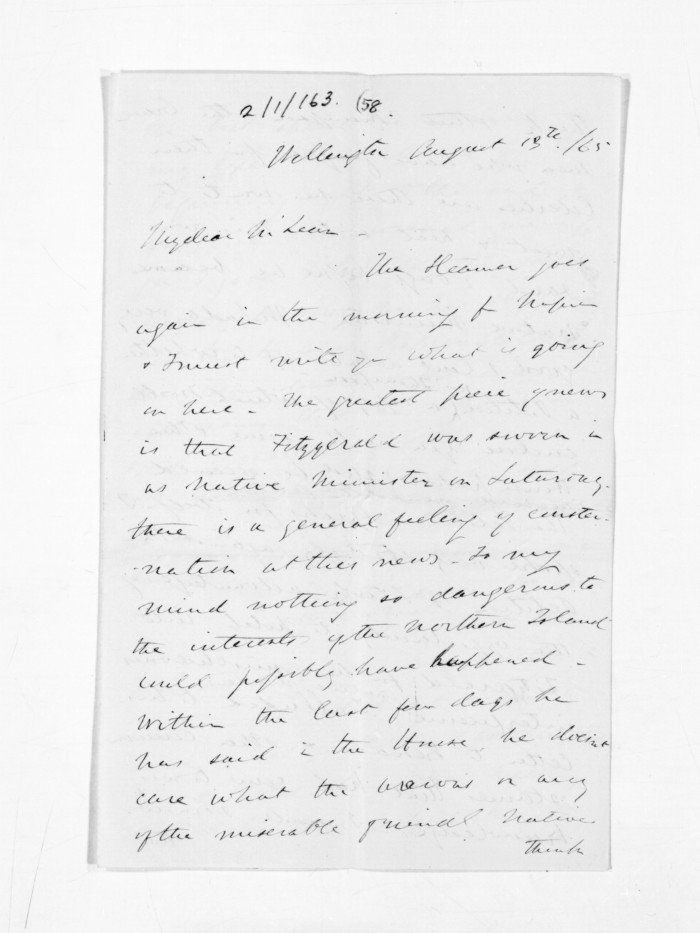 2/1/163. (58.
Wellington August 13th/65
My dear McLean -
The Steamer goes
again in the morning for Napier
& I must write you what is going
on here - The greatest piece of news
is that Fitzgerald was sworn in
as Native Minister on Saturday.
there is a general feeling of conster-
nation at this news - To my
mind nothing so dangerous to
the interests of the Northern Island
could possibly have happened -
Within the last few days he
has said in the House, he doesnt
care what the or any
of the miserable friendly Natives
think